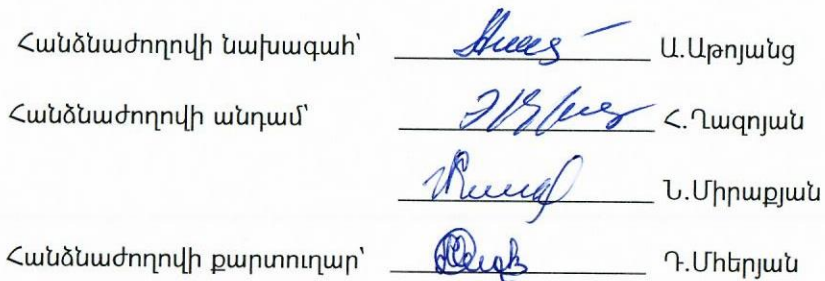 Հանձնաժողովի նախագահ՝ Ա.Աթոյանց
Հանձնաժողովի անդամ՝ Հ.Ղազոյան
Ն.Միրաքյան
Հանձնաժողովի քարտուղար՝ Դ.Մհերյան